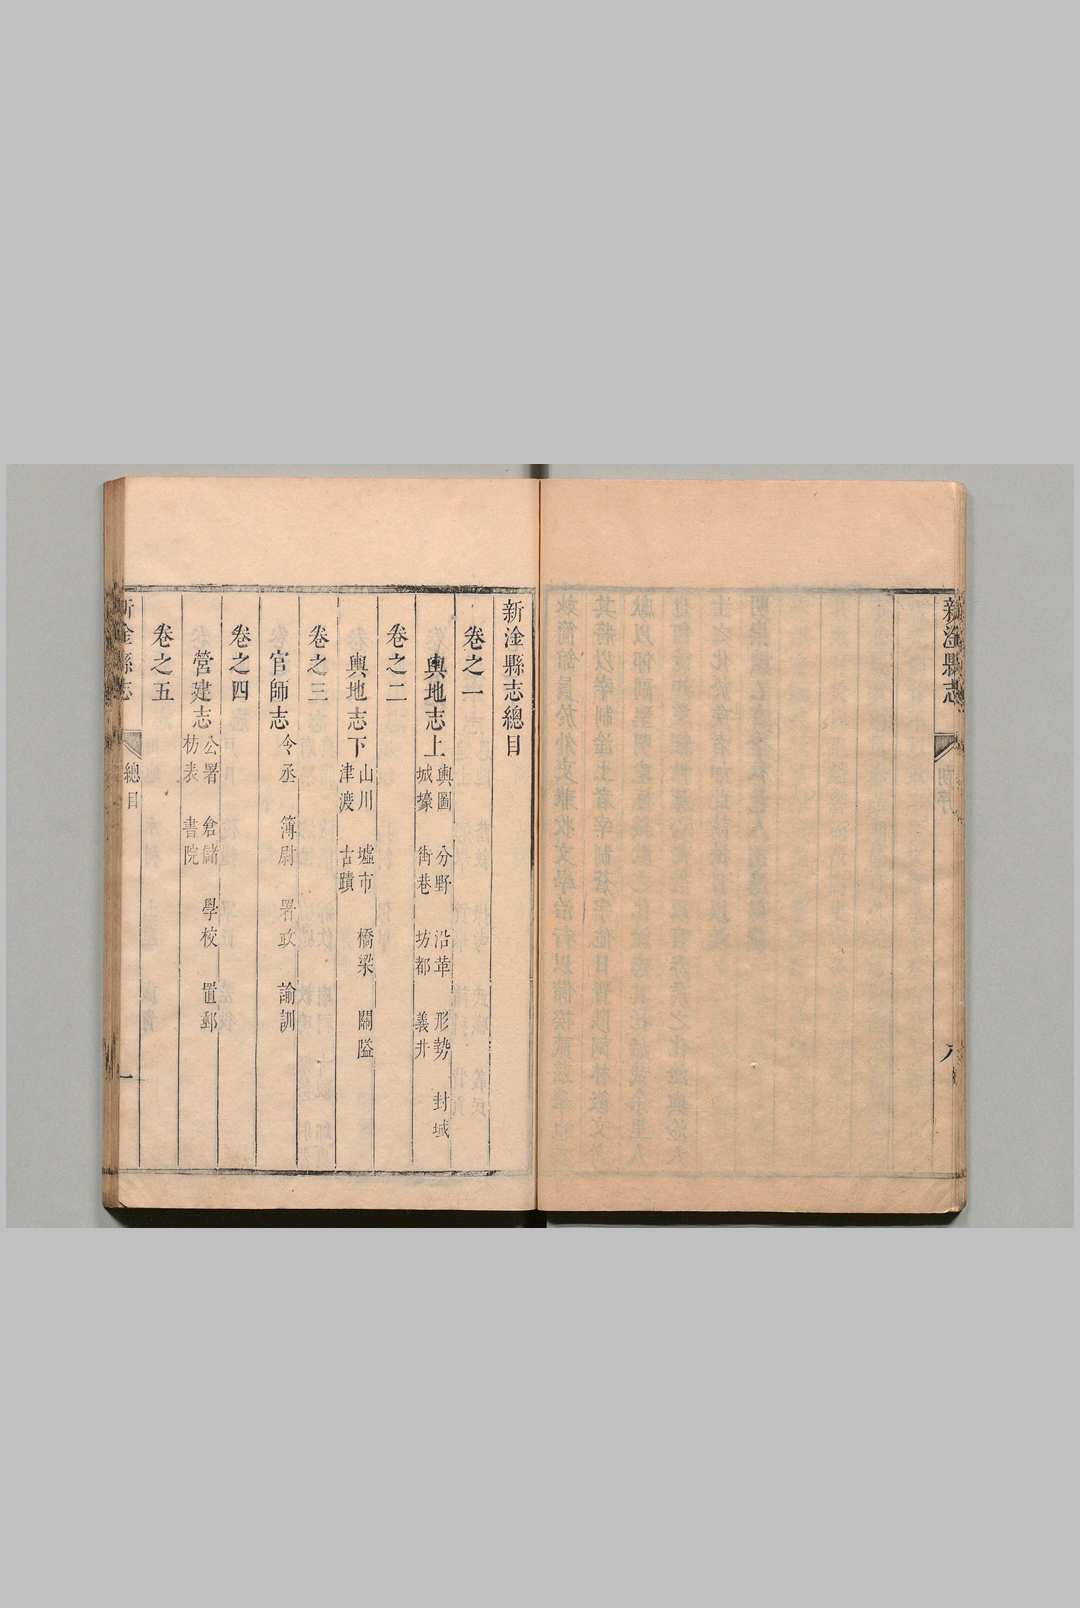 新淦縣志
新淦縣志總目
卷之一
輿地志上
輿圖　分野　沿革　形勢　封域
城壕　街巷　坊都　義井
卷之二
輿地志下
山川　墟市　橋梁　關隘
津渡　古蹟
卷之三
官師志
令丞　簿尉　署政　諭訓
卷之四
營建志
公署　倉儲　學校　置郵
坊表　書院
卷之五
新淦縣志
總目
一